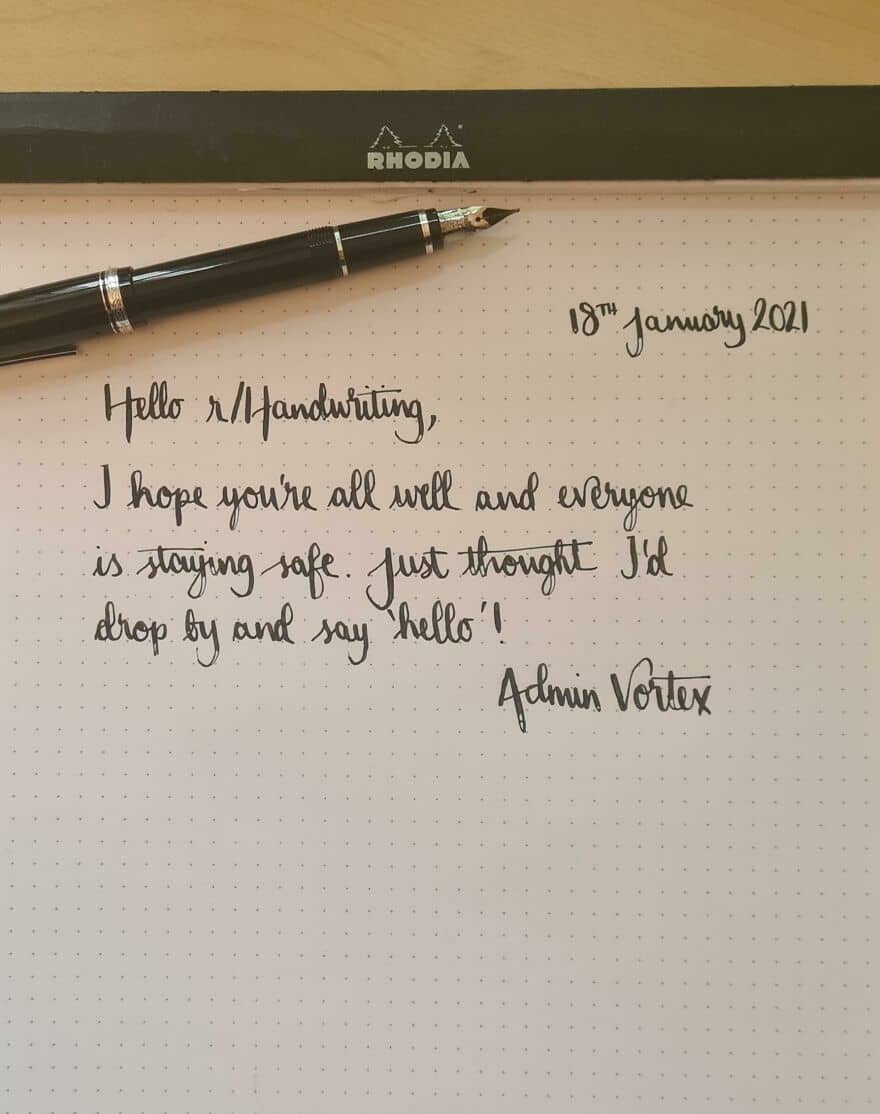 RHODIA
18TH January 2021
Hello r/Handwriting,
I hope you're all well and everyone
is staying safe. Just thought I'd
drop by and say 'hello'!
Admin Vortex